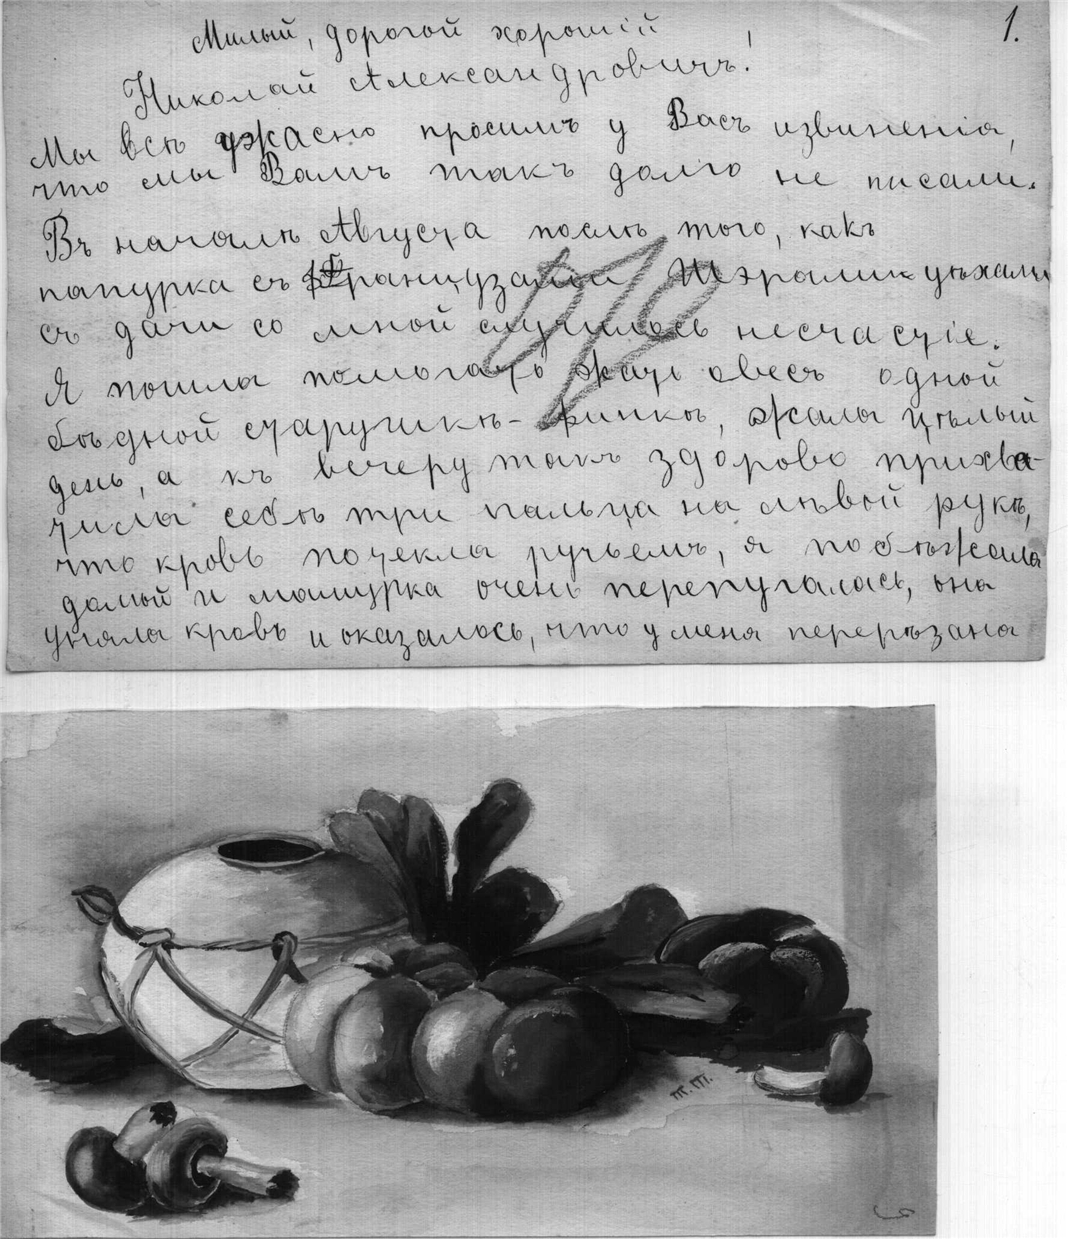 1.
Милый, дорогой хорошій
Николай Александровичъ!
Мы всѣ ужасно просимъ у Васъ извиненія,
что мы Вамъ такъ долго не писали.
Въ началѣ Августа послѣ того, какъ
папурка съ французами уѣхали
съ дачи со мной случилось несчастіе.
Я пошла помогать жать овесъ одной
бѣдной старушкѣ - финкѣ, жала цѣлый
день, а къ вечеру такъ здорово прихва-
тила себѣ три пальца на лѣвой рукѣ,
что кровь потекла ручьемъ, я побѣжала
домой и мамурка очень перепугалась, она
уняла кровь и оказалось, что у меня перерѣзана
Т.Т.